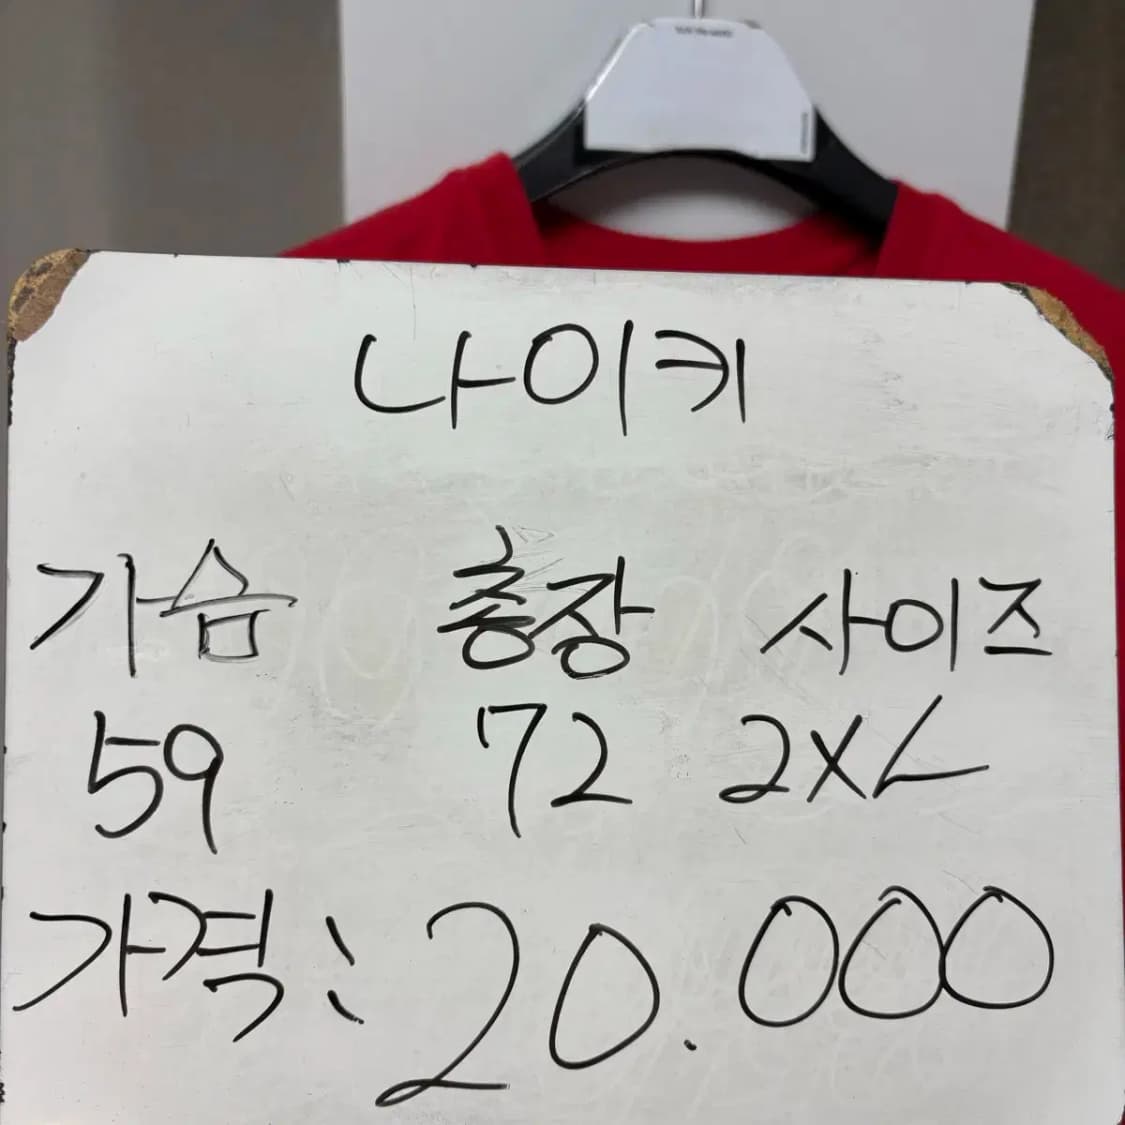 나이키
가슴 총장 사이즈
59 72 2XL
가격: 20.000